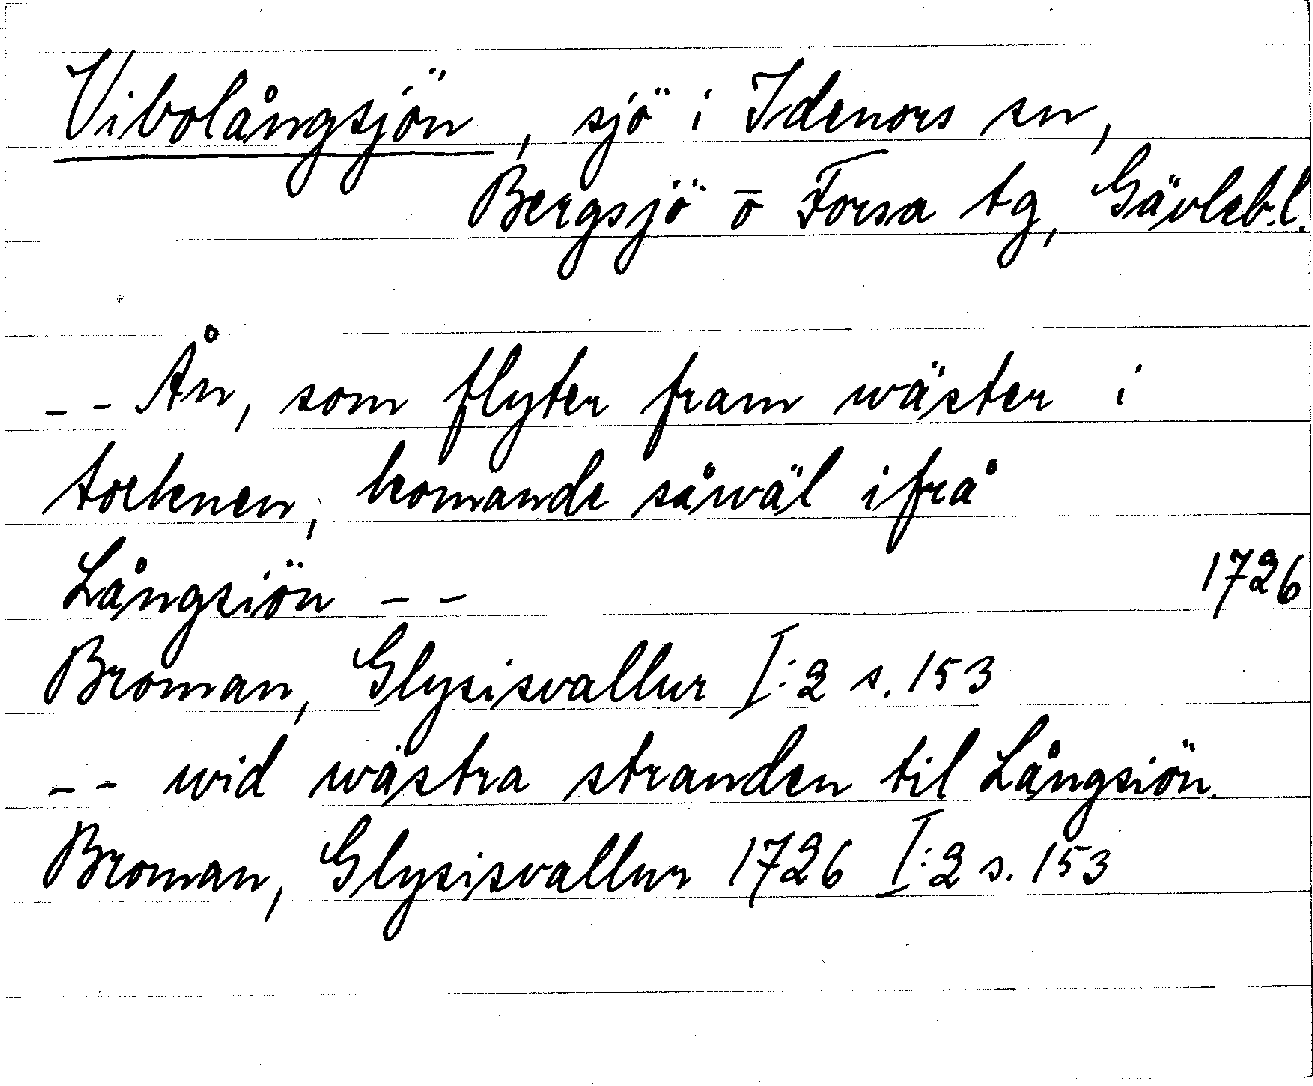 Vibolångsjön, sjö i Idenors sn,
Bergsjö o Forsa tg, Gävleb.l.
-- Ån, som flyter fram wäster i
socknen, komande såwäl ifrå
Långsiön -- 1726
Broman, Glysisvallur I:2 s. 153
-- wid wästra stranden til Långsiön.
Broman, Glysisvallur 1726 I:2 s. 153